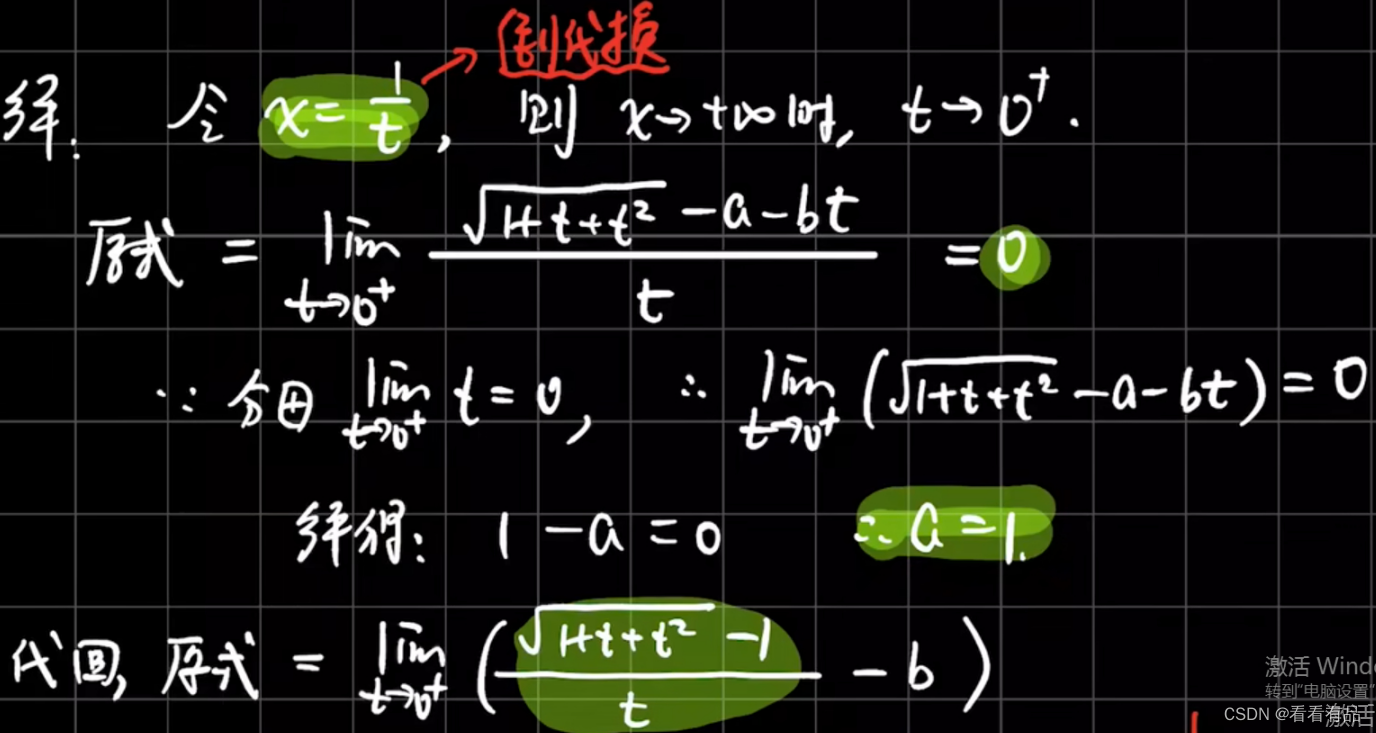 倒代换
解: 令 x = 1/t, 则 x→+∞时, t→0⁺.
原式 = lim t→0⁺ (√(1+t+t²) -a-bt)/t = 0
∵ 分母 lim t→0⁺ t = 0, ∴ lim t→0⁺ (√(1+t+t²) -a-bt) = 0
解得: 1-a=0 ∴ a=1.
代回, 原式 = lim t→0⁺ ( (√(1+t+t²) -1)/t - b )
激活 Wind
转到"电脑设置"
CSDN @看看有品
激活